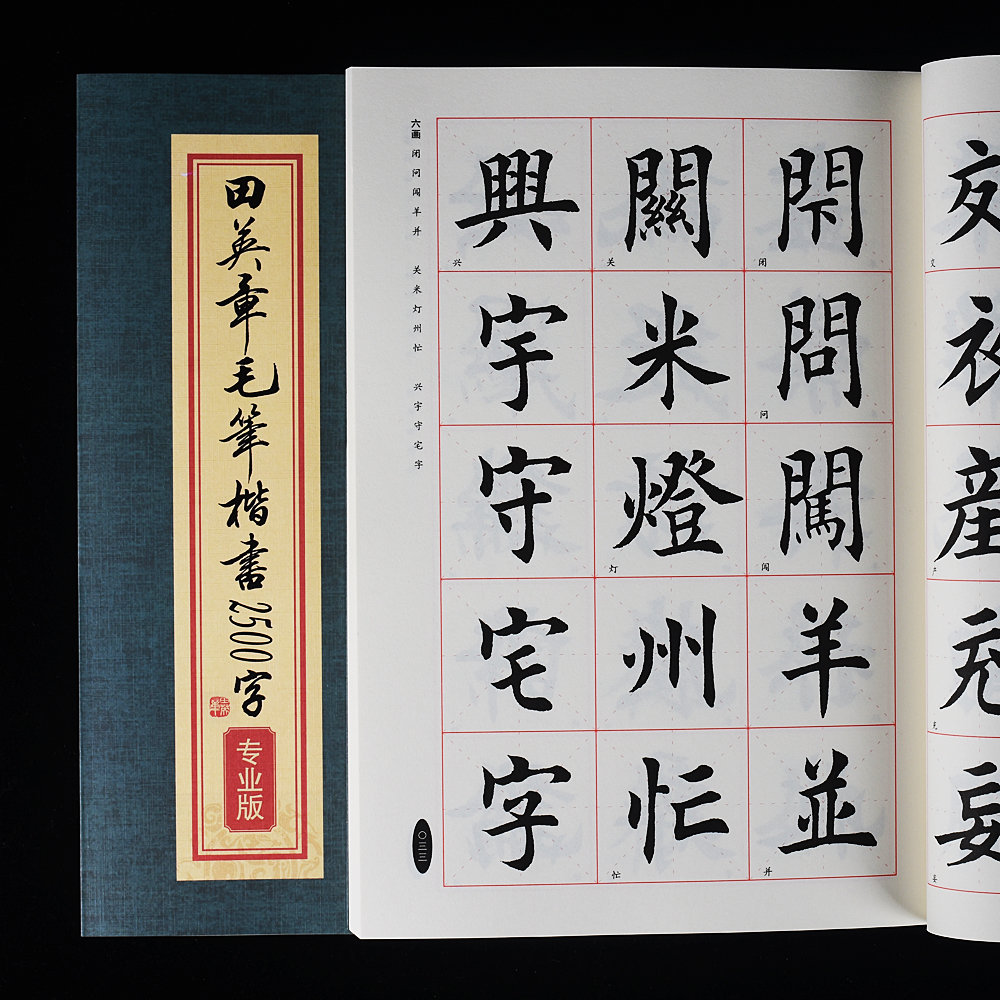 田英章毛筆楷書2500字
专业版
六画 闭问闯羊并 关米灯州忙 兴宇守宅字
交衣産充妄
交
产
充
妄
閇問闖羊並
闭
问
闯
并
關米燈州忙
关
灯
忙
興宇守宅字
兴